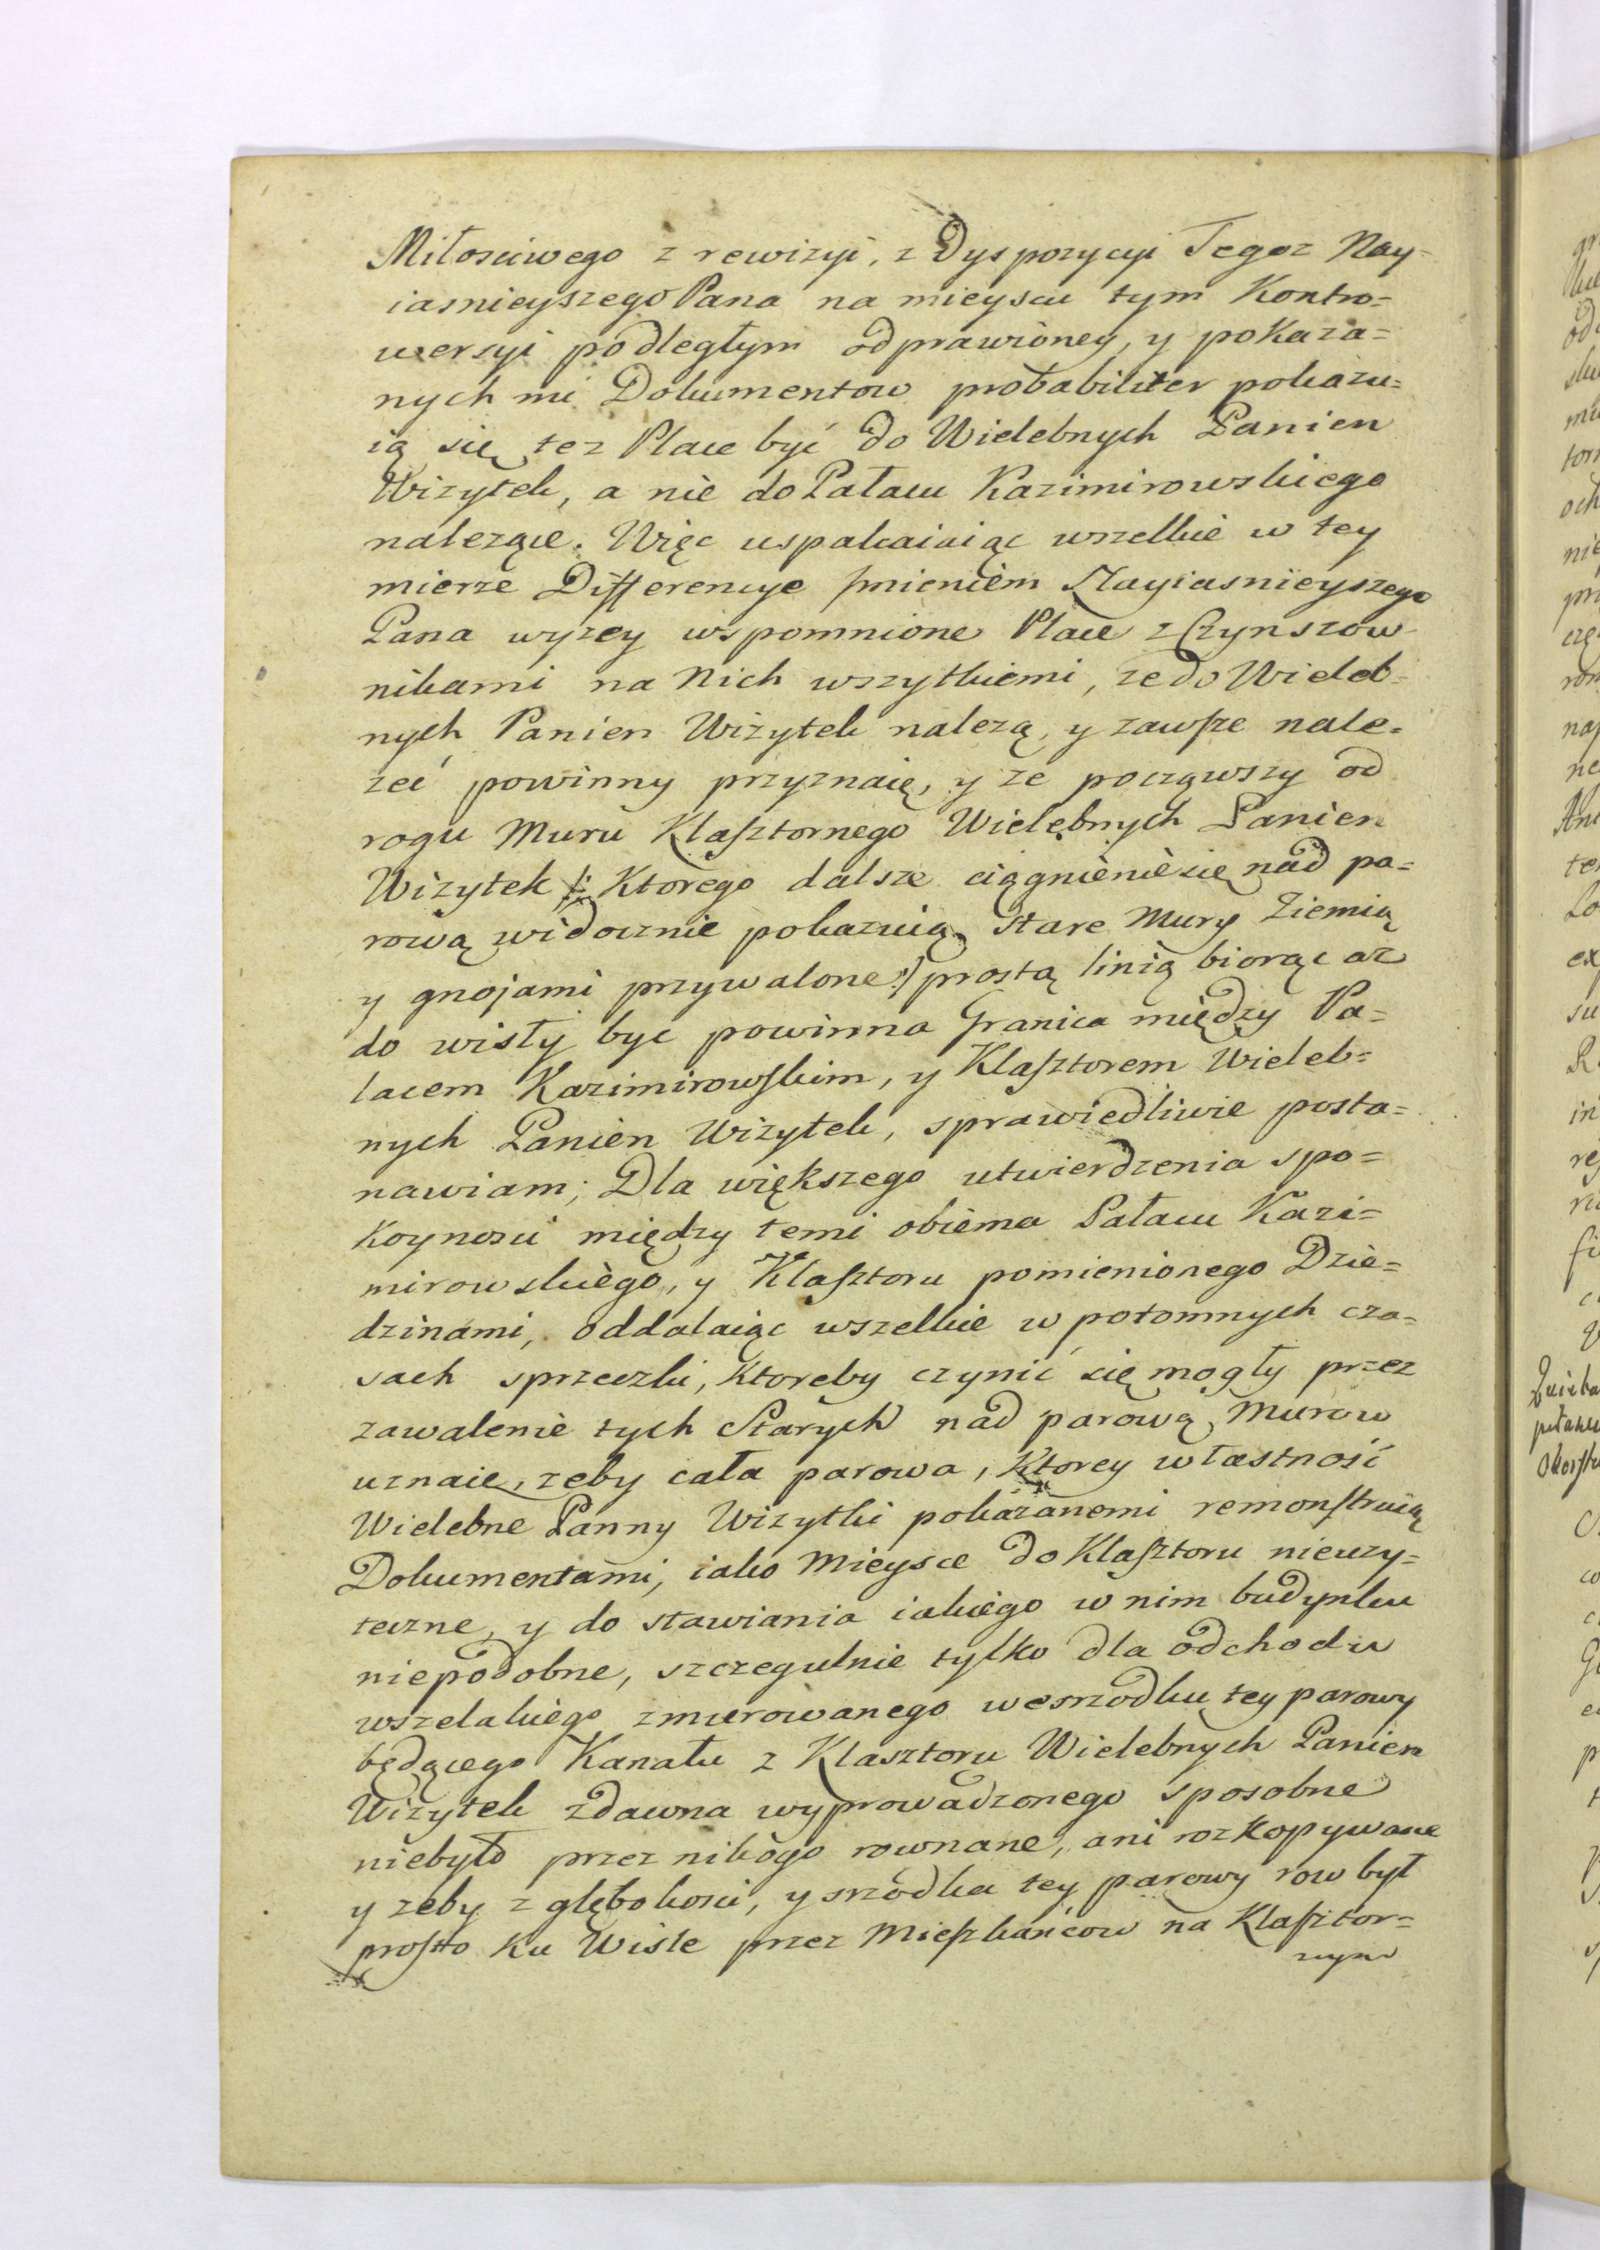 Miłosciwego z rewizyi, z Dyspozycyi Tegoz Nay=
iasnieyszego Pana na mieyscu tym Kontro=
wersyi podległym odprawioney, y pokaza=
nych mi Dokumentow probabiliter pokazu=
ią się tez Place być do Wielebnych Panien
Wizytek, a nie do Pałacu Kazimirowskiego
nalezące. Więc uspakaiaiąc wszelkie w tey
mierze Differencye Imieniem Nayiasnieyszego
Pana wyzey wspomnione Place z Czynszow
nikami na Nich wszytkiemi, ze do Wieleb=
nych Panien Wizytek nalezą, y zawsze nale=
zeć powinny przyznaię, y ze począwszy od
rogu Muru Klasztornego Wielebnych Panien
Wizytek /: Ktorego dalsze ciągnienie się nad pa=
rową widocznie pokazuią Stare Mury Ziemią
y gnojami przywalone :/ prostą linią biorąc az
do wisły byc powinna Granica między Pa=
lacem Kazimirowskim, y Klasztorem Wieleb=
nych Panien Wizytek, sprawiedliwie posta=
nawiam; Dla większego utwierdzenia spo=
koynosci między temi obiema Pałacu Kazi=
mirowskiego, y Klasztoru pomienionego Dzie=
dzinami, oddalaiąc wszelkie w potomnych cza=
sach sprzeczki, Ktoreby czynić się mogły przez
zawalenie tych Starych nad parową Murow
uznaie, zeby cała parowa, Ktorey własność
Wielebne Panny Wizytki pokazanemi remonstruią
Dokumentami, iako Mieysce do Klasztoru nieuzy=
teczne, y do stawiania iakiego w nim budynku
niepodobne, szczegulnie tylko dla odchodu
wszelakiego zmurowanego wesrzodku tey parowy
będącego Kanału z Klasztoru Wielebnych Panien
Wizytek zdawna wyprowadzonego sposobne
niebyło przez nikogo rownane, ani rozkopywane
y zeby z głębokosci, y srzodka tey parowy row był
prosto ku Wisle przez Mieszkańcow na Klasztor=
nym